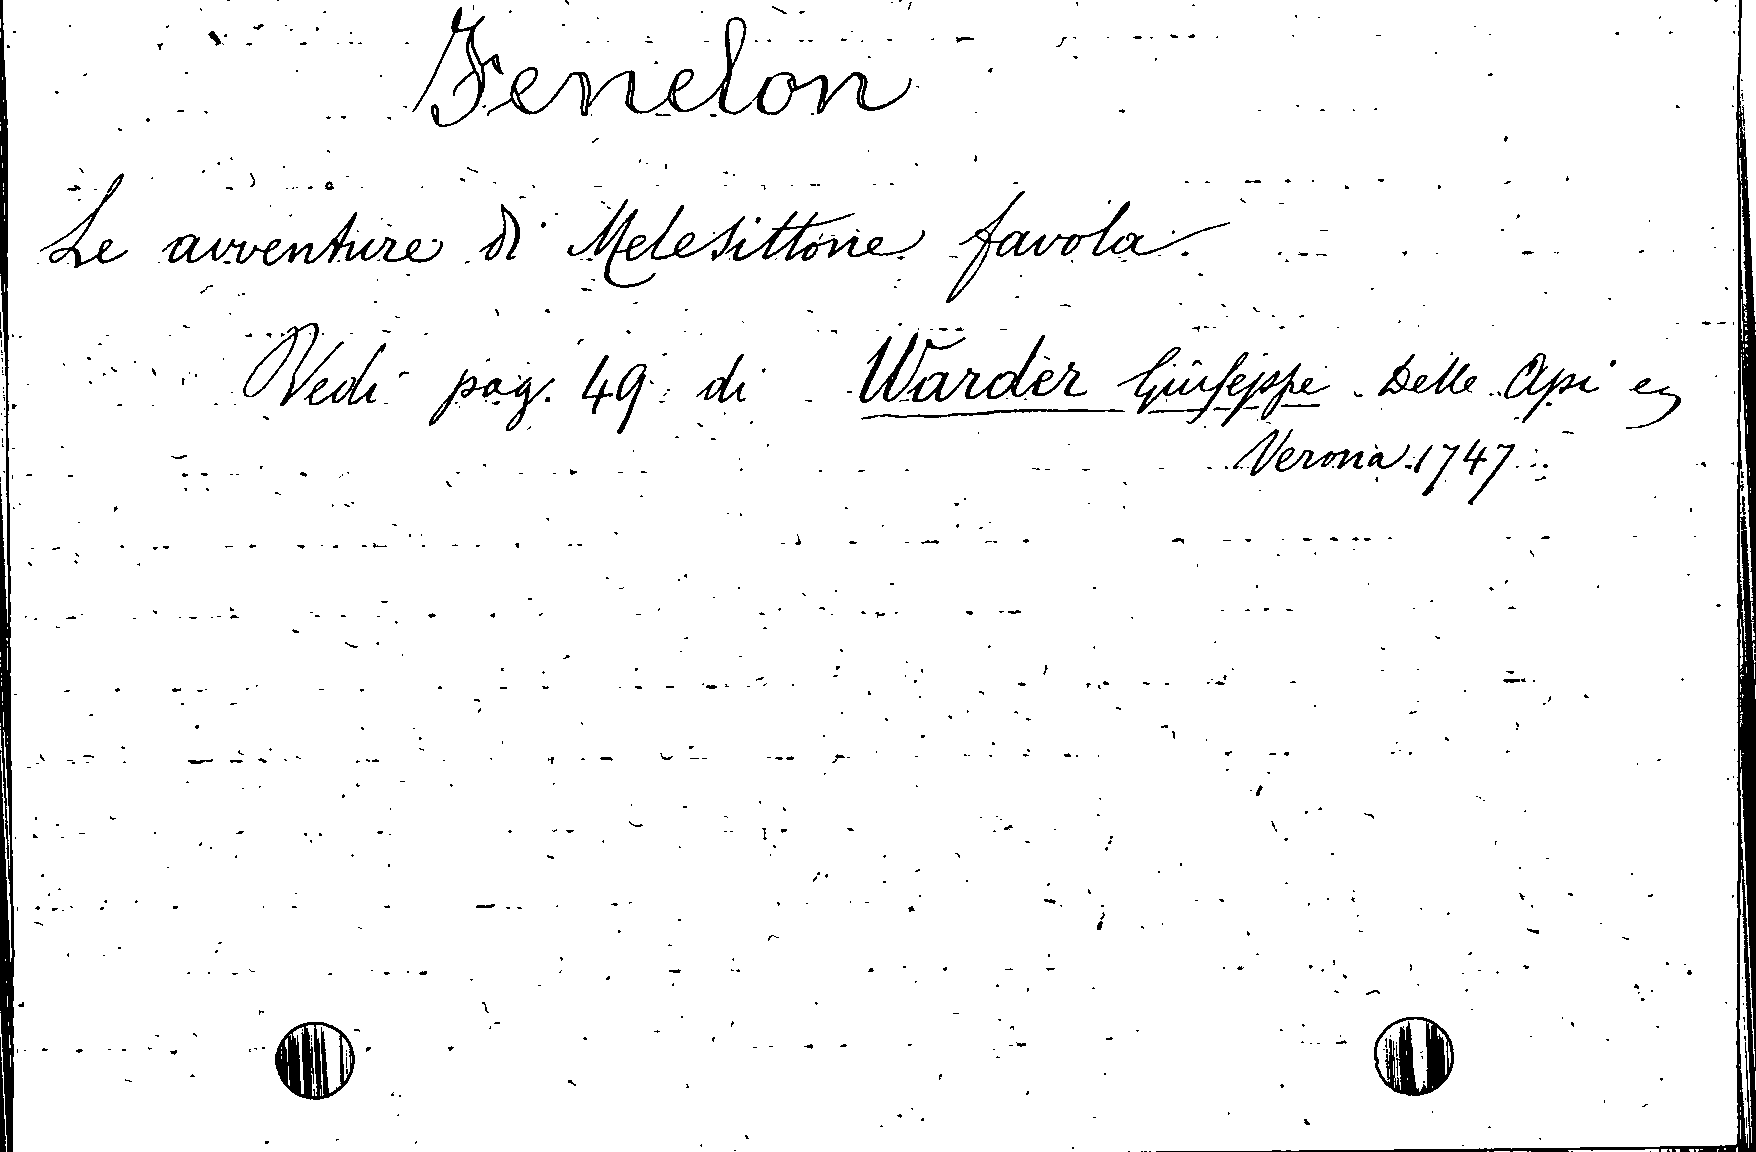 Fenelon
Le avventure di Melesittone favola.
Vedi pag. 49 di Warder Giuseppe Delle Api
Verona 1747